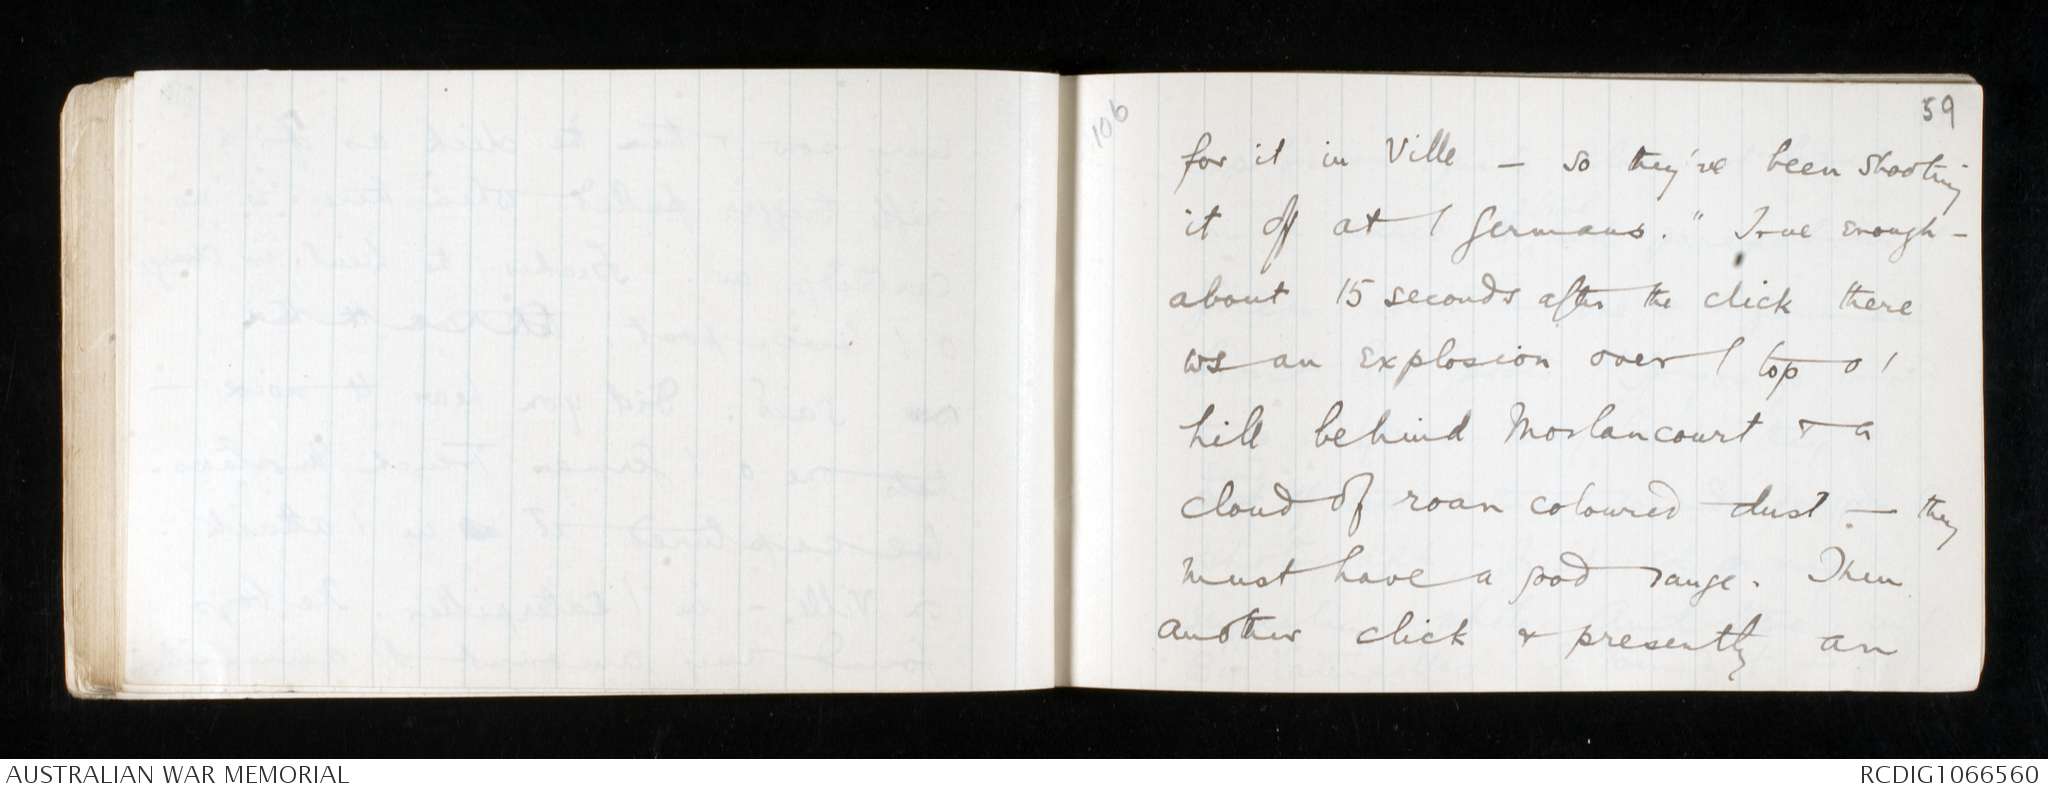 106
59
for it in Ville — so they've been shooting
it off at / Germans." True enough —
about 15 seconds after the click there
ws an explosion over / top o /
hill behind Morlancourt & a
cloud of roan coloured dust. — they
must have a good range. Then
another click & presently an
AUSTRALIAN WAR MEMORIAL
RCDIG1066560